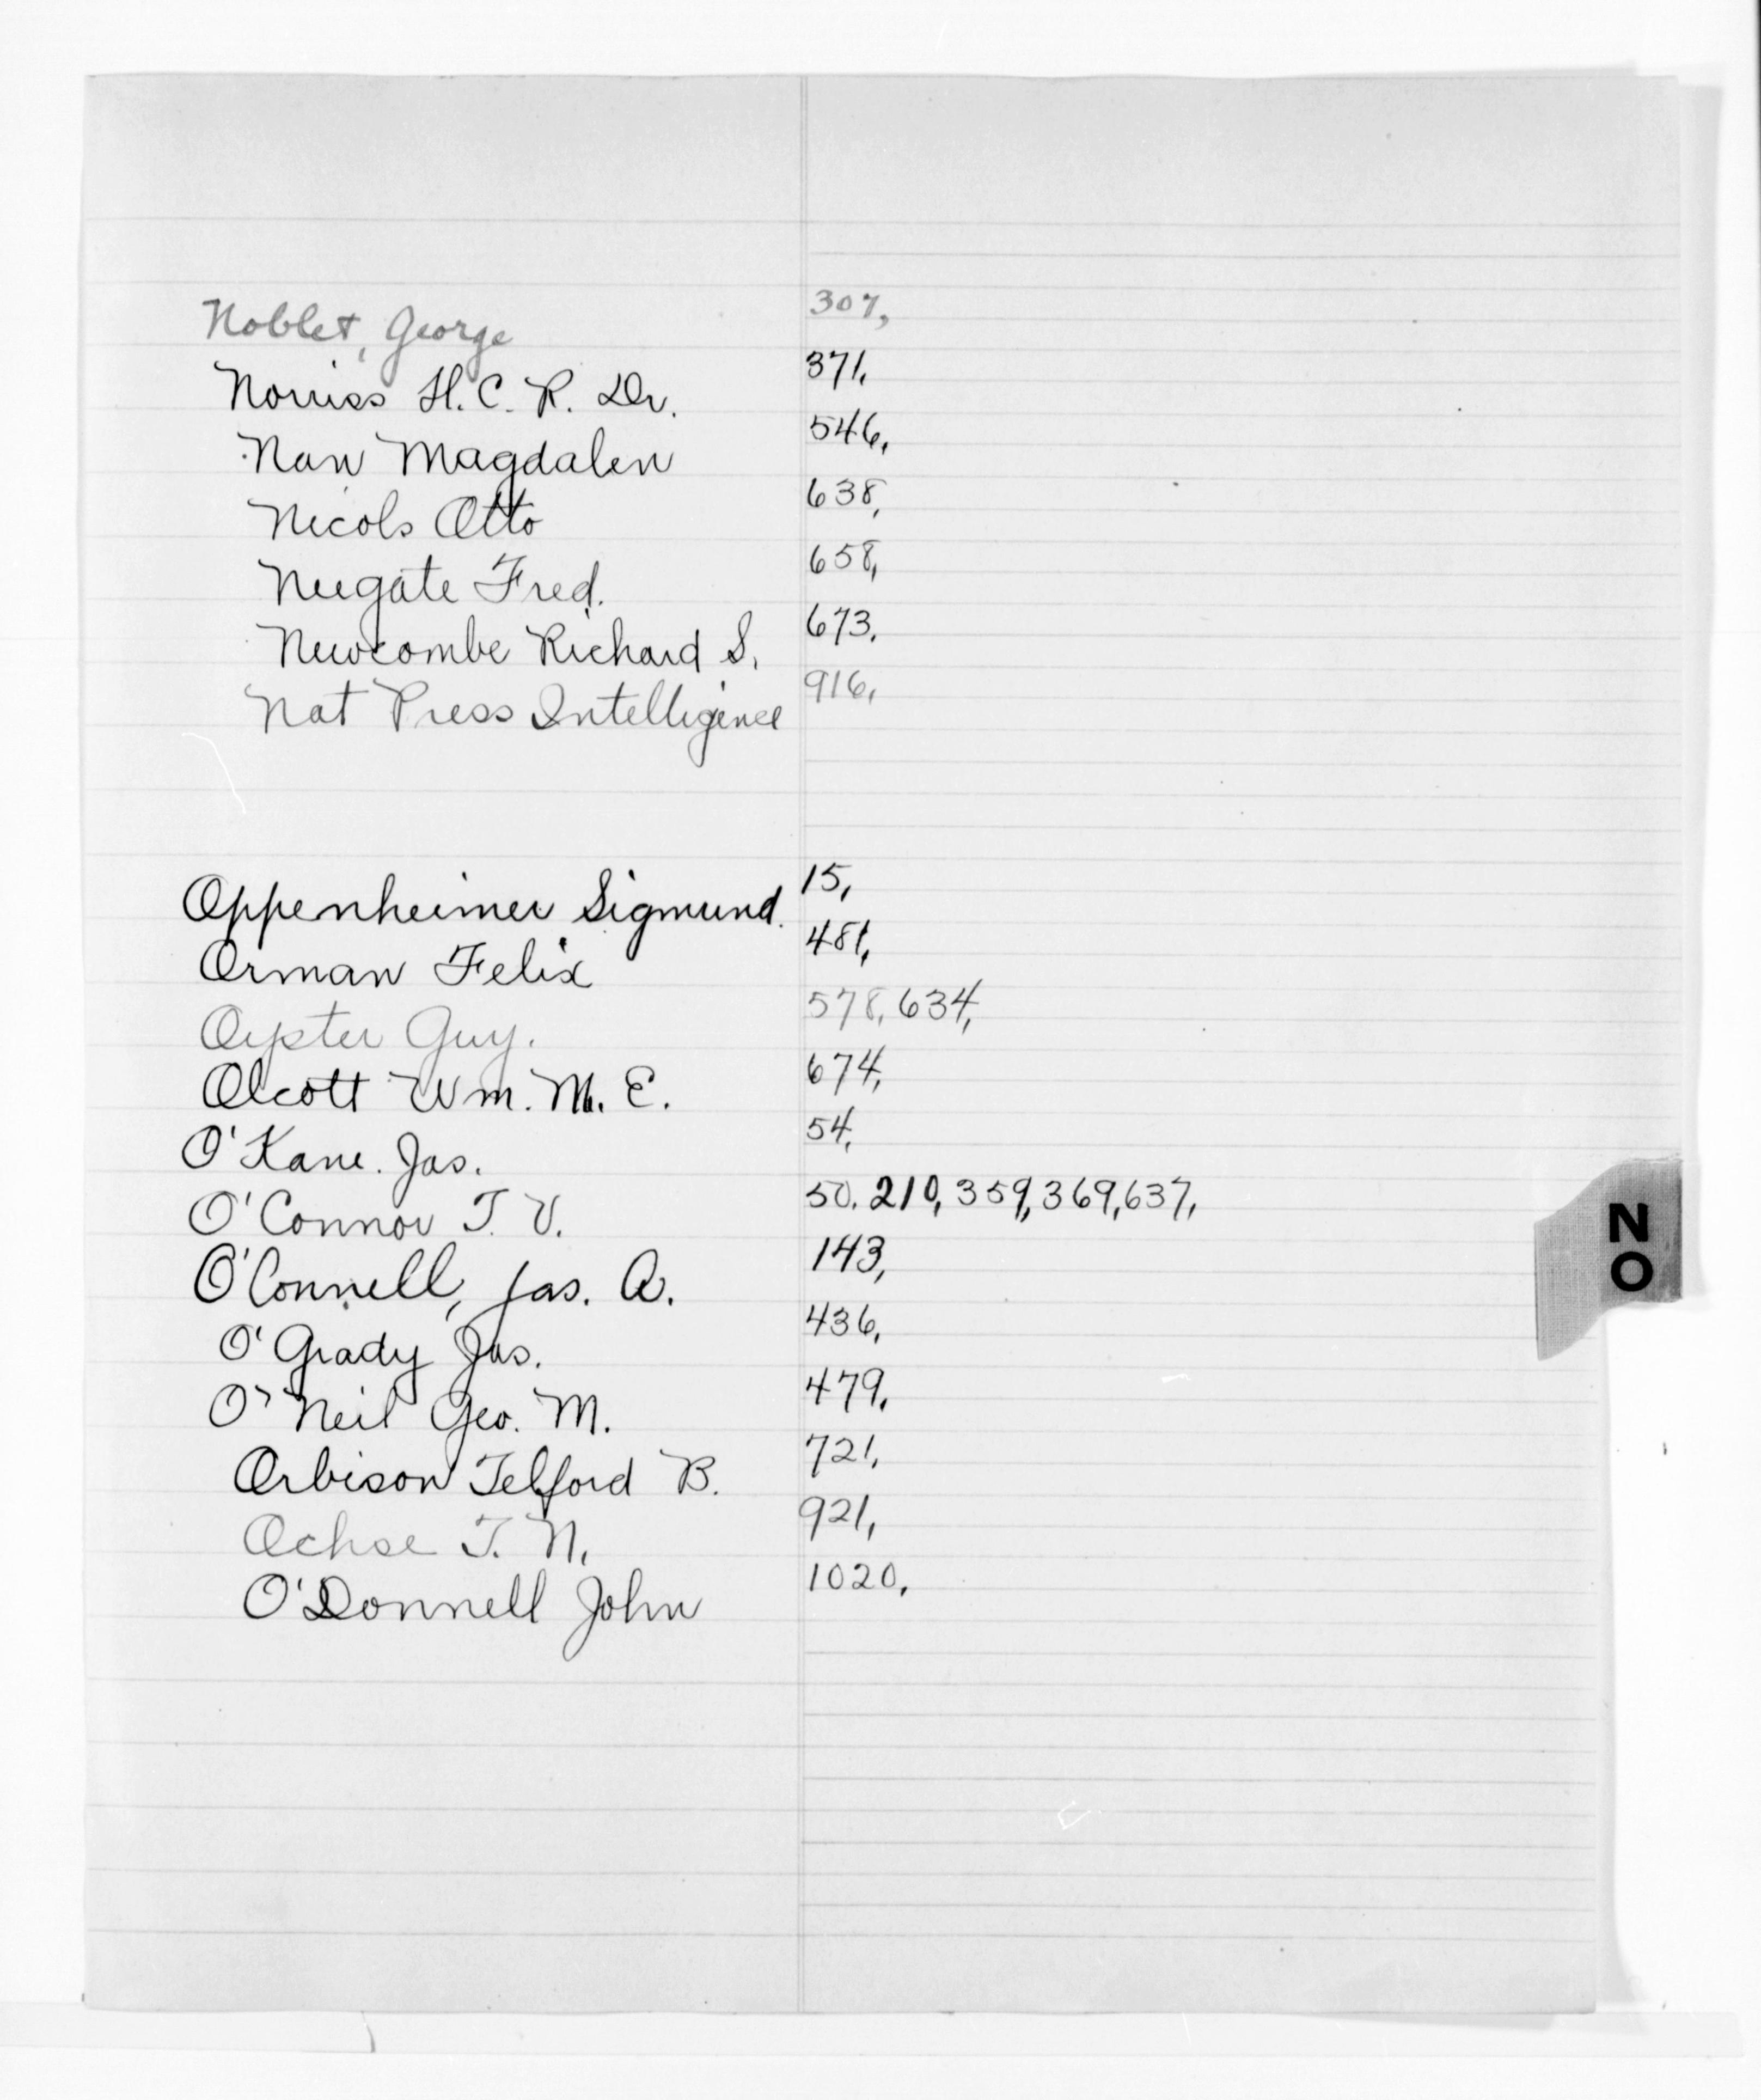 Noblet, George 307,
Norriss H. C. R. Dr. 371,
Nan Magdalen 546,
Nicols Otto 638,
Neegate Fred. 658,
Newcombe Richard S. 673,
Nat Press Intelligence 916,
Oppenheimer Sigmund. 15,
Orman Felix 481,
Oyster Guy. 578, 634,
Olcott Wm. M. E. 674,
O'Kane. Jas. 54,
O'Connor T. V. 50. 210, 359, 369, 637,
O'Connell, Jas. A. 143,
O'Grady Jas. 436,
O'Neil Geo. M. 479,
Orbison Telford B. 721,
Ochse T. N. 921,
O'Donnell John 1020,
N
O